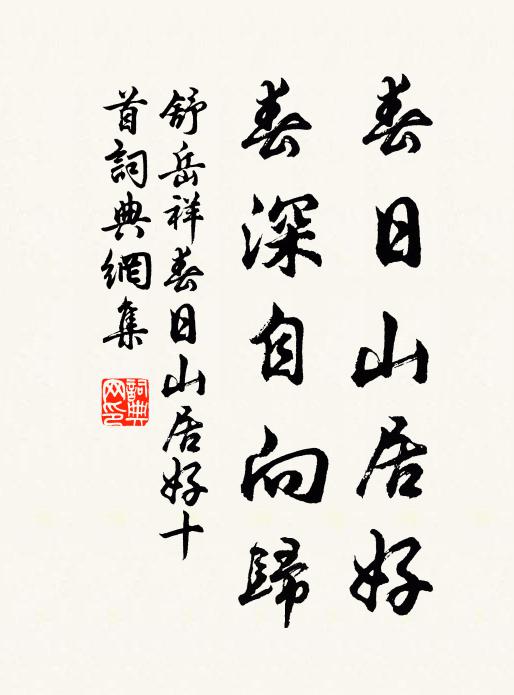 春日山居好
春深自向歸
舒岳祥春日山居好十
首詞典網集
詞典網印